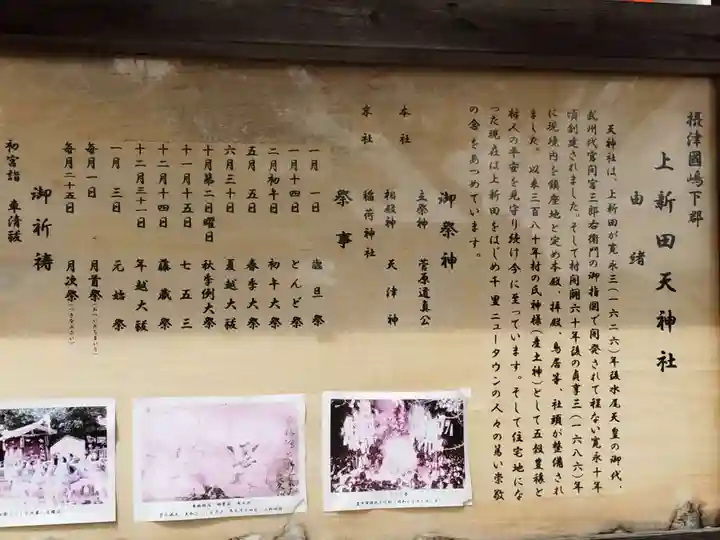 摂津國嶋下郡
上新田天神社
由緒
天神社は、上新田が寛永三(一六二六)年後水尾天皇の御代、
武州代官間宮三郎右衛門の御指図で開発されて程ない寛永十年
頃創建されました。そして村開闢六十年後の貞享三(一六八六)年
に現境内を鎮座地と定め本殿、拝殿、鳥居等、社頭が整備され
ました。以来三百八十年村の氏神様(産土神)として五穀豊穣と
村人の平安を見守り続け今に至っています。そして住宅地にな
った現在は上新田をはじめ千里ニュータウンの人々の篤い崇敬
の念をあつめています。
御祭神
本社 主祭神 菅原道真公
相殿神 天津神
末社 稲荷神社
祭事
一月一日 歳旦祭
一月十四日 とんど祭
二月初午日 初午大祭
五月五日 春季大祭
六月三十日 夏越大祓
十月第二日曜日 秋季例大祭
十一月十五日 七五三
十二月十四日 藤蔵祭
十二月三十一日 年越大祓
一月三日 元始祭
毎月一日 月首祭
毎月二十五日 月次祭(つきなみさい)
御祈祷
初宮詣 車清祓